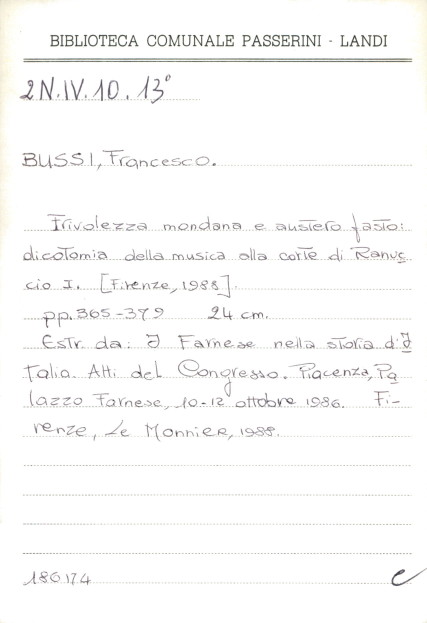 BIBLIOTECA COMUNALE PASSERINI - LANDI
2N.IV.10.13°
BUSSI, Francesco.
Frivolezza mondana e austero fasto:
dicotomia della musica alla corte di Ranuc
cio I. [Firenze, 1988].
pp. 365-379 24 cm.
Estr. da: I Farnese nella storia d'I
talia. Atti del Congresso. Piacenza, Pa
lazzo Farnese, 10-12 ottobre 1986. Fi-
renze, Le Monnier, 1988.
186174
C